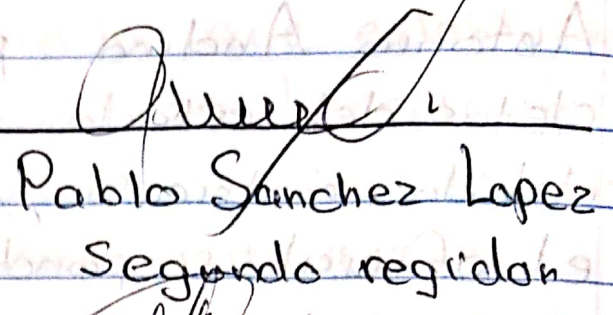 Pablo Sanchez Lopez
Segundo regidor